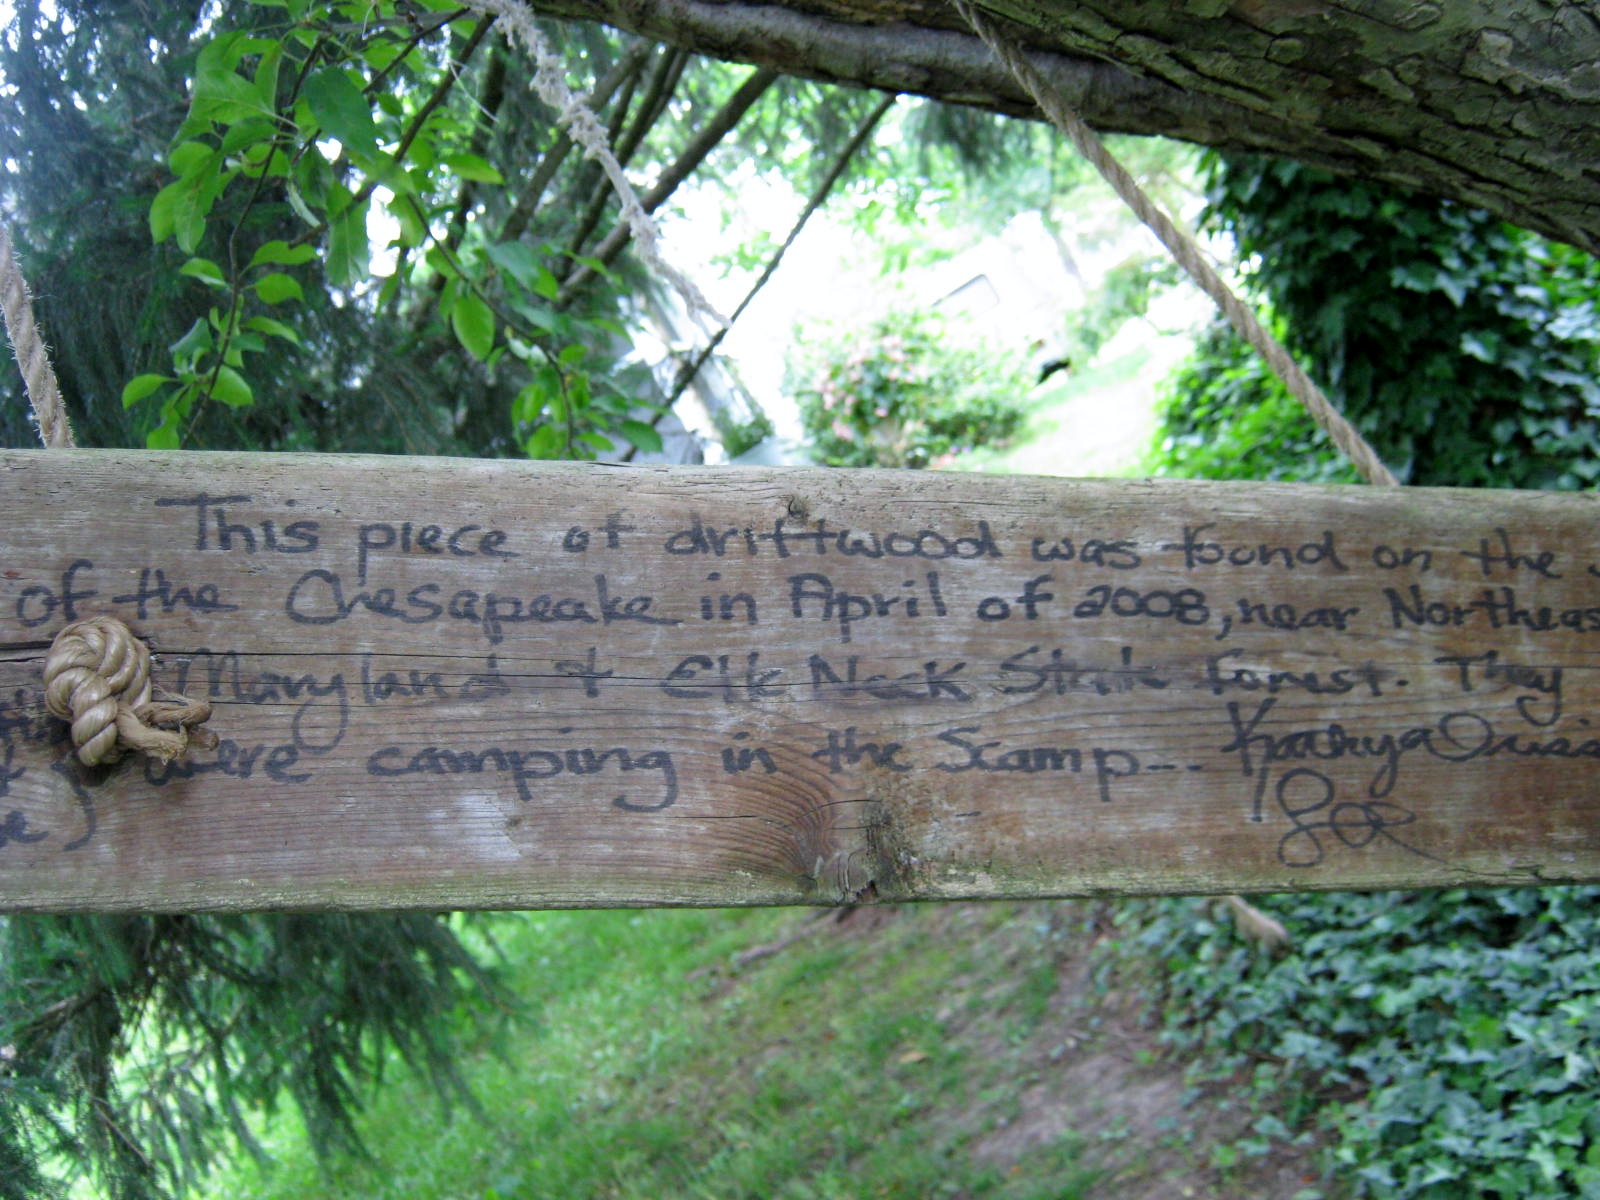 This piece of driftwood was found on the
of the Chesapeake in April of 2008, near Northeas
Maryland & Elk Neck State Forest. They
were camping in the Scamp...